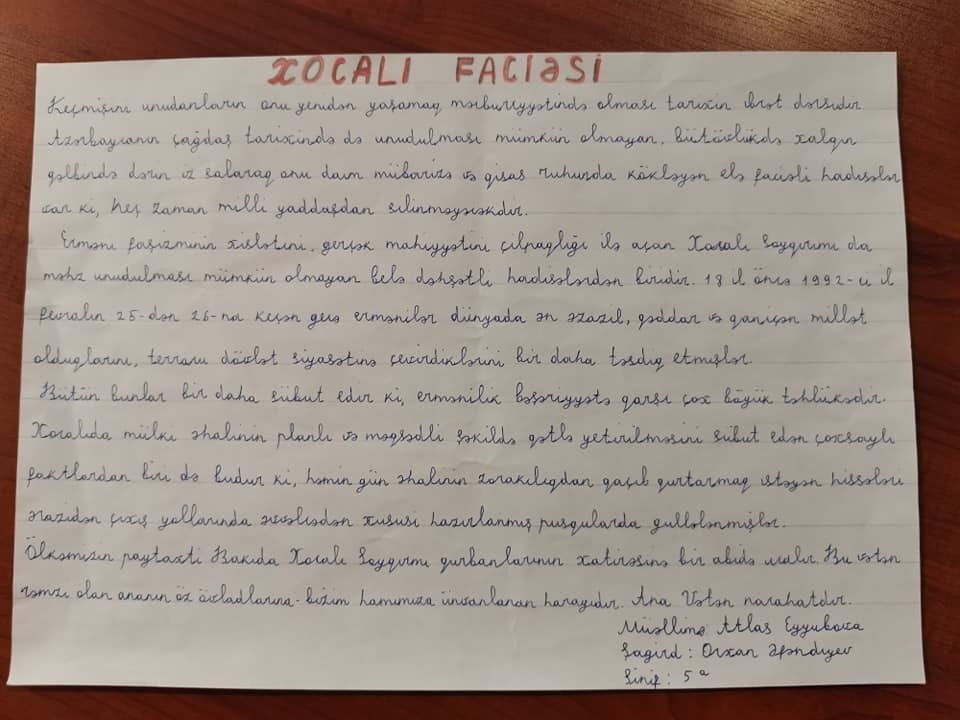 XOCALI FACİƏSİ
Keçmişini unudanların onu yenidən yaşamaq məcburiyyətində olması tarixin ibrət dərsidir.
Azərbaycanın çağdaş tarixində də unudulması mümkün olmayan, bütövlükdə xalqın
qəlbində dərin iz salaraq onu daim mübarizə və qisas ruhunda kökləyən elə faciəli hadisələr
var ki, heç zaman milli yaddaşdan silinməyəcəkdir.
Erməni faşizminin xislətini, gerçək mahiyyətini çılpaqlığı ilə açan Xocalı Soyqırımı da
məhz unudulması mümkün olmayan belə dəhşətli hadisələrdən biridir. 18 il öncə 1992-ci il
fevralın 25-dən 26-na keçən gecə ermənilər dünyada ən əzazil, qəddar və qaniçən millət
olduqlarını, terroru dövlət siyasətinə çevirdiklərini bir daha təsdiq etmişlər.
Bütün bunlar bir daha sübut edir ki, ermənilik bəşəriyyətə qarşı çox böyük təhlükədir.
Xocalıda mülki əhalinin planlı və məqsədli şəkildə qətlə yetirilməsini sübut edən çoxsaylı
faktlardan biri də budur ki, həmin gün əhalinin zorakılıqdan qaçıb qurtarmaq istəyən hissələri
ərazidən çıxış yollarında əvvəlcədən xüsusi hazırlanmış pusqularda güllələnmişlər.
Ölkəmizin paytaxtı Bakıda Xocalı Soyqırımı qurbanlarının xatirəsinə bir abidə ucalır. Bu vətən
rəmzi olan ananın öz övladlarına-bizim hamımıza ünvanlanan harayıdır. Ana Vətən narahatdır.
Müəllimə Atlas Eyyubova
Şagird : Orxan Əfəndiyev
Sinif : 5ᵃ